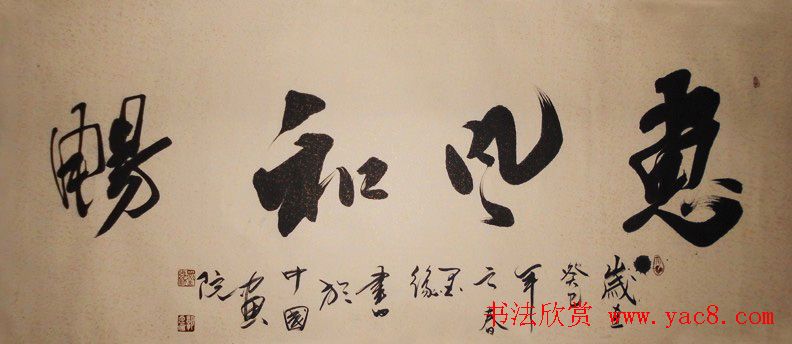 惠風和暢
歲在癸巳年之春墨緣書於中國畫院
书法欣赏 www.yac8.com